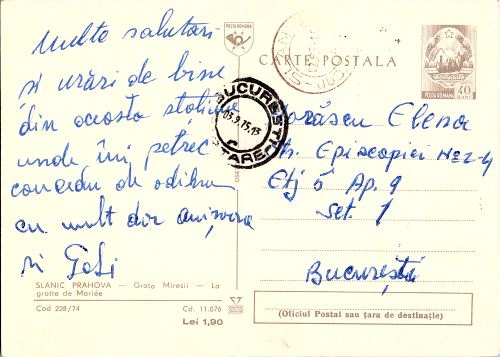 Multe salutări
și urări de bine
din această stațiune
unde îmi petrec
concediu de odihnă
cu mult dor
și
SLANIC PRAHOVA — Grota Miresii — La
grotte de Mariée
Cod 228/74
Cd. 11.076
Lei 1,90
POSTA ROMANA
CARTE POSTALA
POSTA ROMANA
40
BANI
BUCUREȘTI
05.9.75.15
Elena
Str. Episcopiei No 2-4
Etj 5 Ap. 9
Set. 1
București
(Oficiul Postal sau țara de destinație)